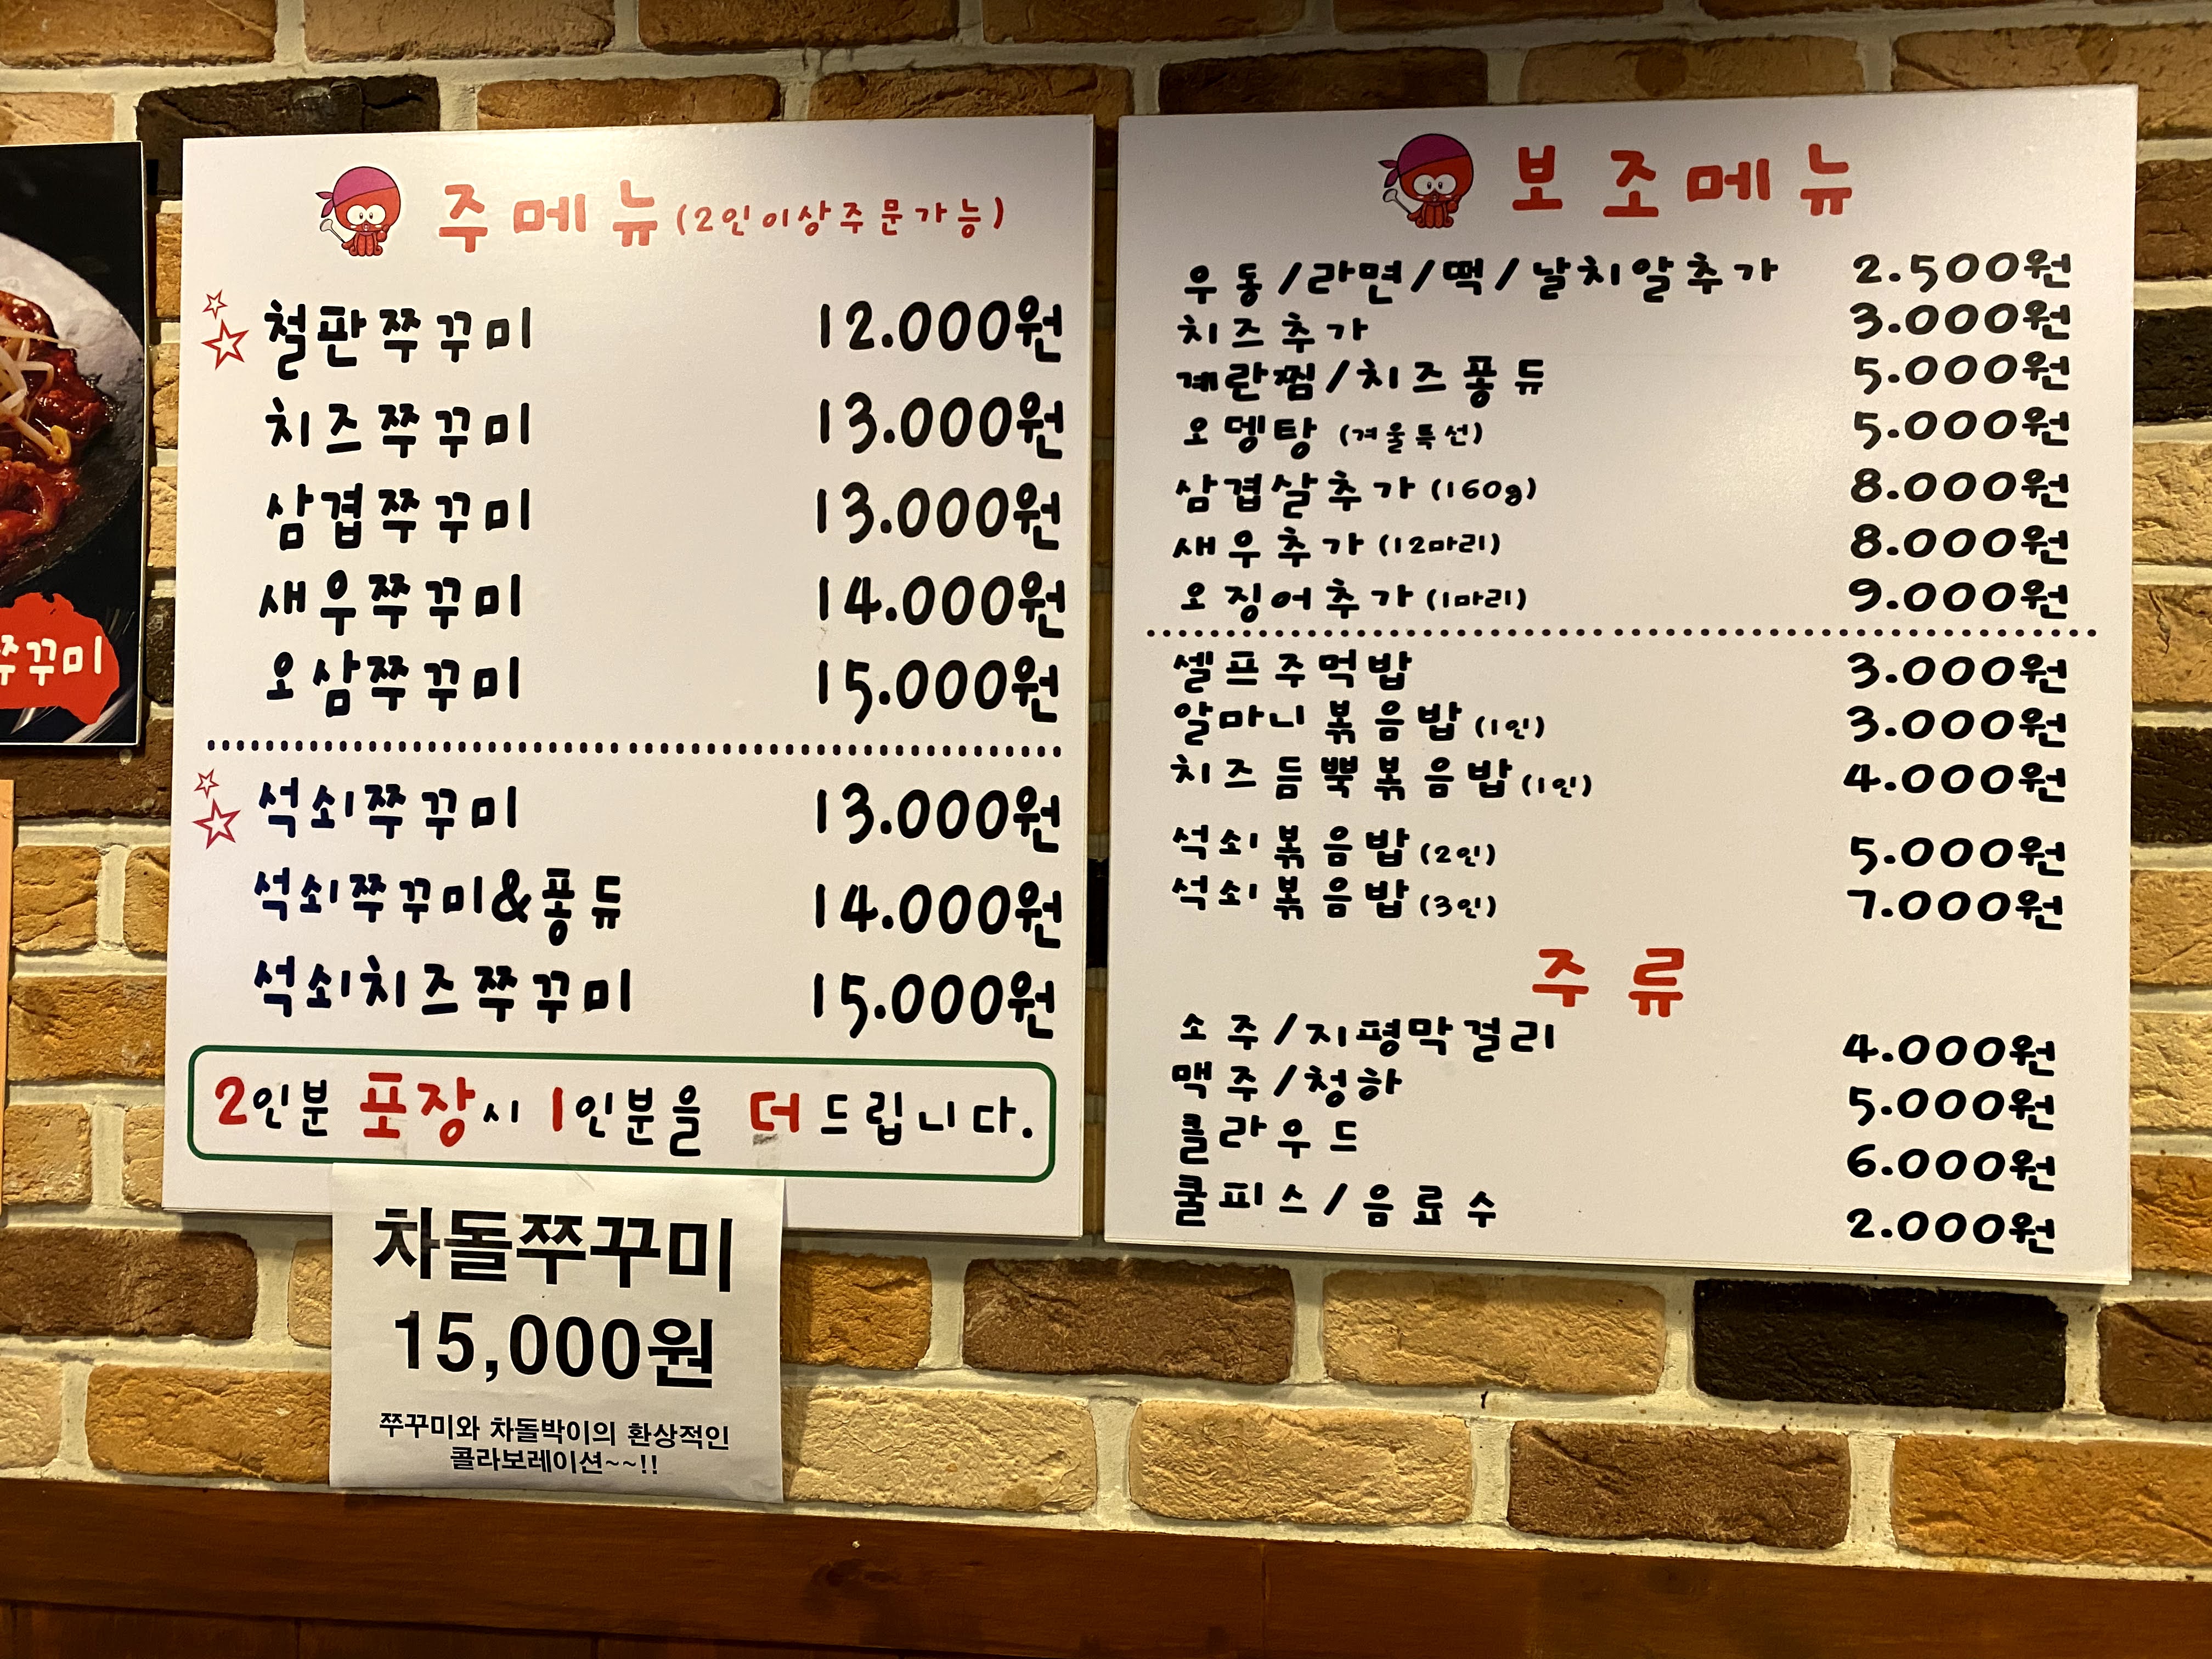 쭈꾸미
주메뉴(2인이상주문가능)
철판쭈꾸미 12.000원
치즈쭈꾸미 13.000원
삼겹쭈꾸미 13.000원
새우쭈꾸미 14.000원
오삼쭈꾸미 15.000원
석쇠쭈꾸미 13.000원
석쇠쭈꾸미&퐁듀 14.000원
석쇠치즈쭈꾸미 15.000원
2인분 포장시 1인분을 더 드립니다.
차돌쭈꾸미
15,000원
쭈꾸미와 차돌박이의 환상적인
콜라보레이션~~!!
보조메뉴
우동/라면/떡/날치알추가 2.500원
치즈추가 3.000원
계란찜/치즈퐁듀 5.000원
오뎅탕 (겨울특선) 5.000원
삼겹살추가 (160g) 8.000원
새우추가 (12마리) 8.000원
오징어추가 (1마리) 9.000원
셀프주먹밥 3.000원
알마니볶음밥 (1인) 3.000원
치즈듬뿍볶음밥 (1인) 4.000원
석쇠볶음밥 (2인) 5.000원
석쇠볶음밥 (3인) 7.000원
주류
소주/지평막걸리 4.000원
맥주/청하 5.000원
클라우드 6.000원
쿨피스/음료수 2.000원